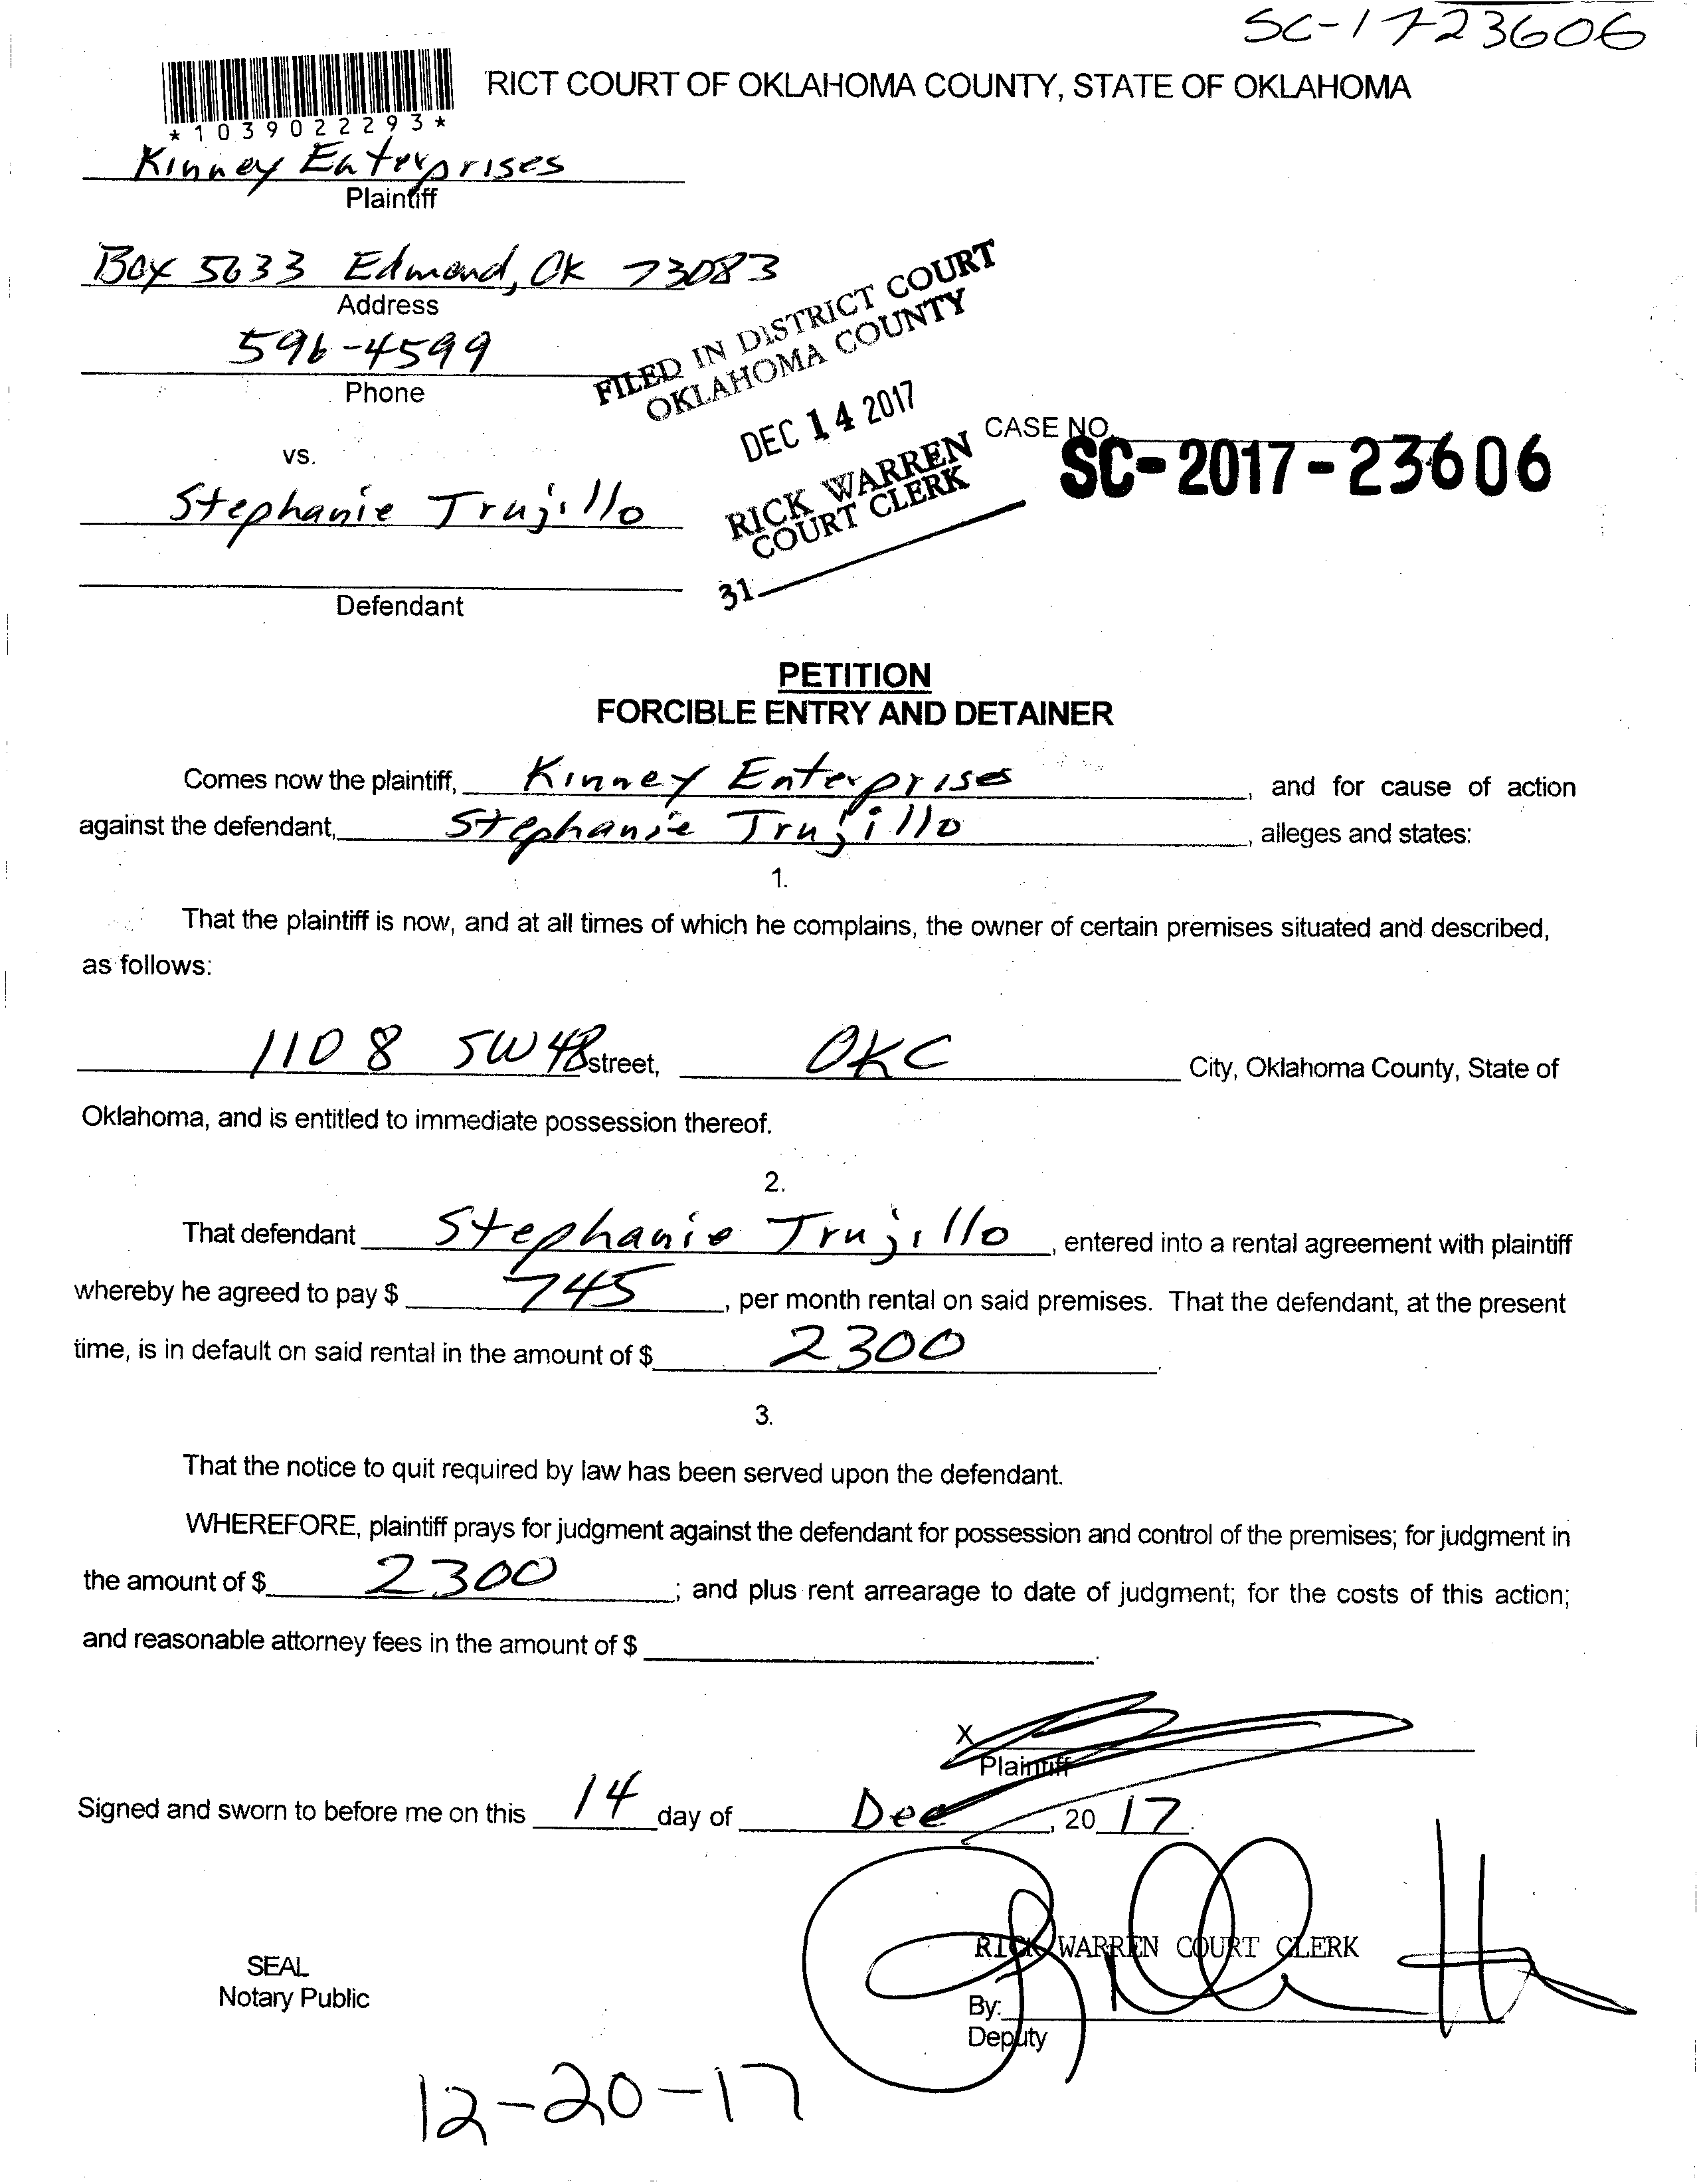 SC-1723606
RICT COURT OF OKLAHOMA COUNTY, STATE OF OKLAHOMA
*1039022293*
Kinney Enterprises
Plaintiff
Box 5633 Edmond, OK 73083
Address
596-4599
Phone
FILED IN DISTRICT COURT
OKLAHOMA COUNTY
DEC 14 2017
RICK WARREN
COURT CLERK
31
CASE NO.
SC-2017-23606
vs.
Stephanie Trujillo
Defendant
PETITION
FORCIBLE ENTRY AND DETAINER
Comes now the plaintiff, Kinney Enterprises, and for cause of action
against the defendant, Stephanie Trujillo, alleges and states:
1.
That the plaintiff is now, and at all times of which he complains, the owner of certain premises situated and described,
as follows:
1108 SW 48 street, OKC City, Oklahoma County, State of
Oklahoma, and is entitled to immediate possession thereof.
2.
That defendant Stephanie Trujillo, entered into a rental agreement with plaintiff
whereby he agreed to pay $ 745, per month rental on said premises. That the defendant, at the present
time, is in default on said rental in the amount of $ 2300.
3.
That the notice to quit required by law has been served upon the defendant.
WHEREFORE, plaintiff prays for judgment against the defendant for possession and control of the premises; for judgment in
the amount of $ 2300; and plus rent arrearage to date of judgment; for the costs of this action;
and reasonable attorney fees in the amount of $ .
X
Plaintiff
Signed and sworn to before me on this 14 day of Dec, 20 17.
RICK WARREN COURT CLERK
SEAL
Notary Public
By:
Deputy
12-20-17